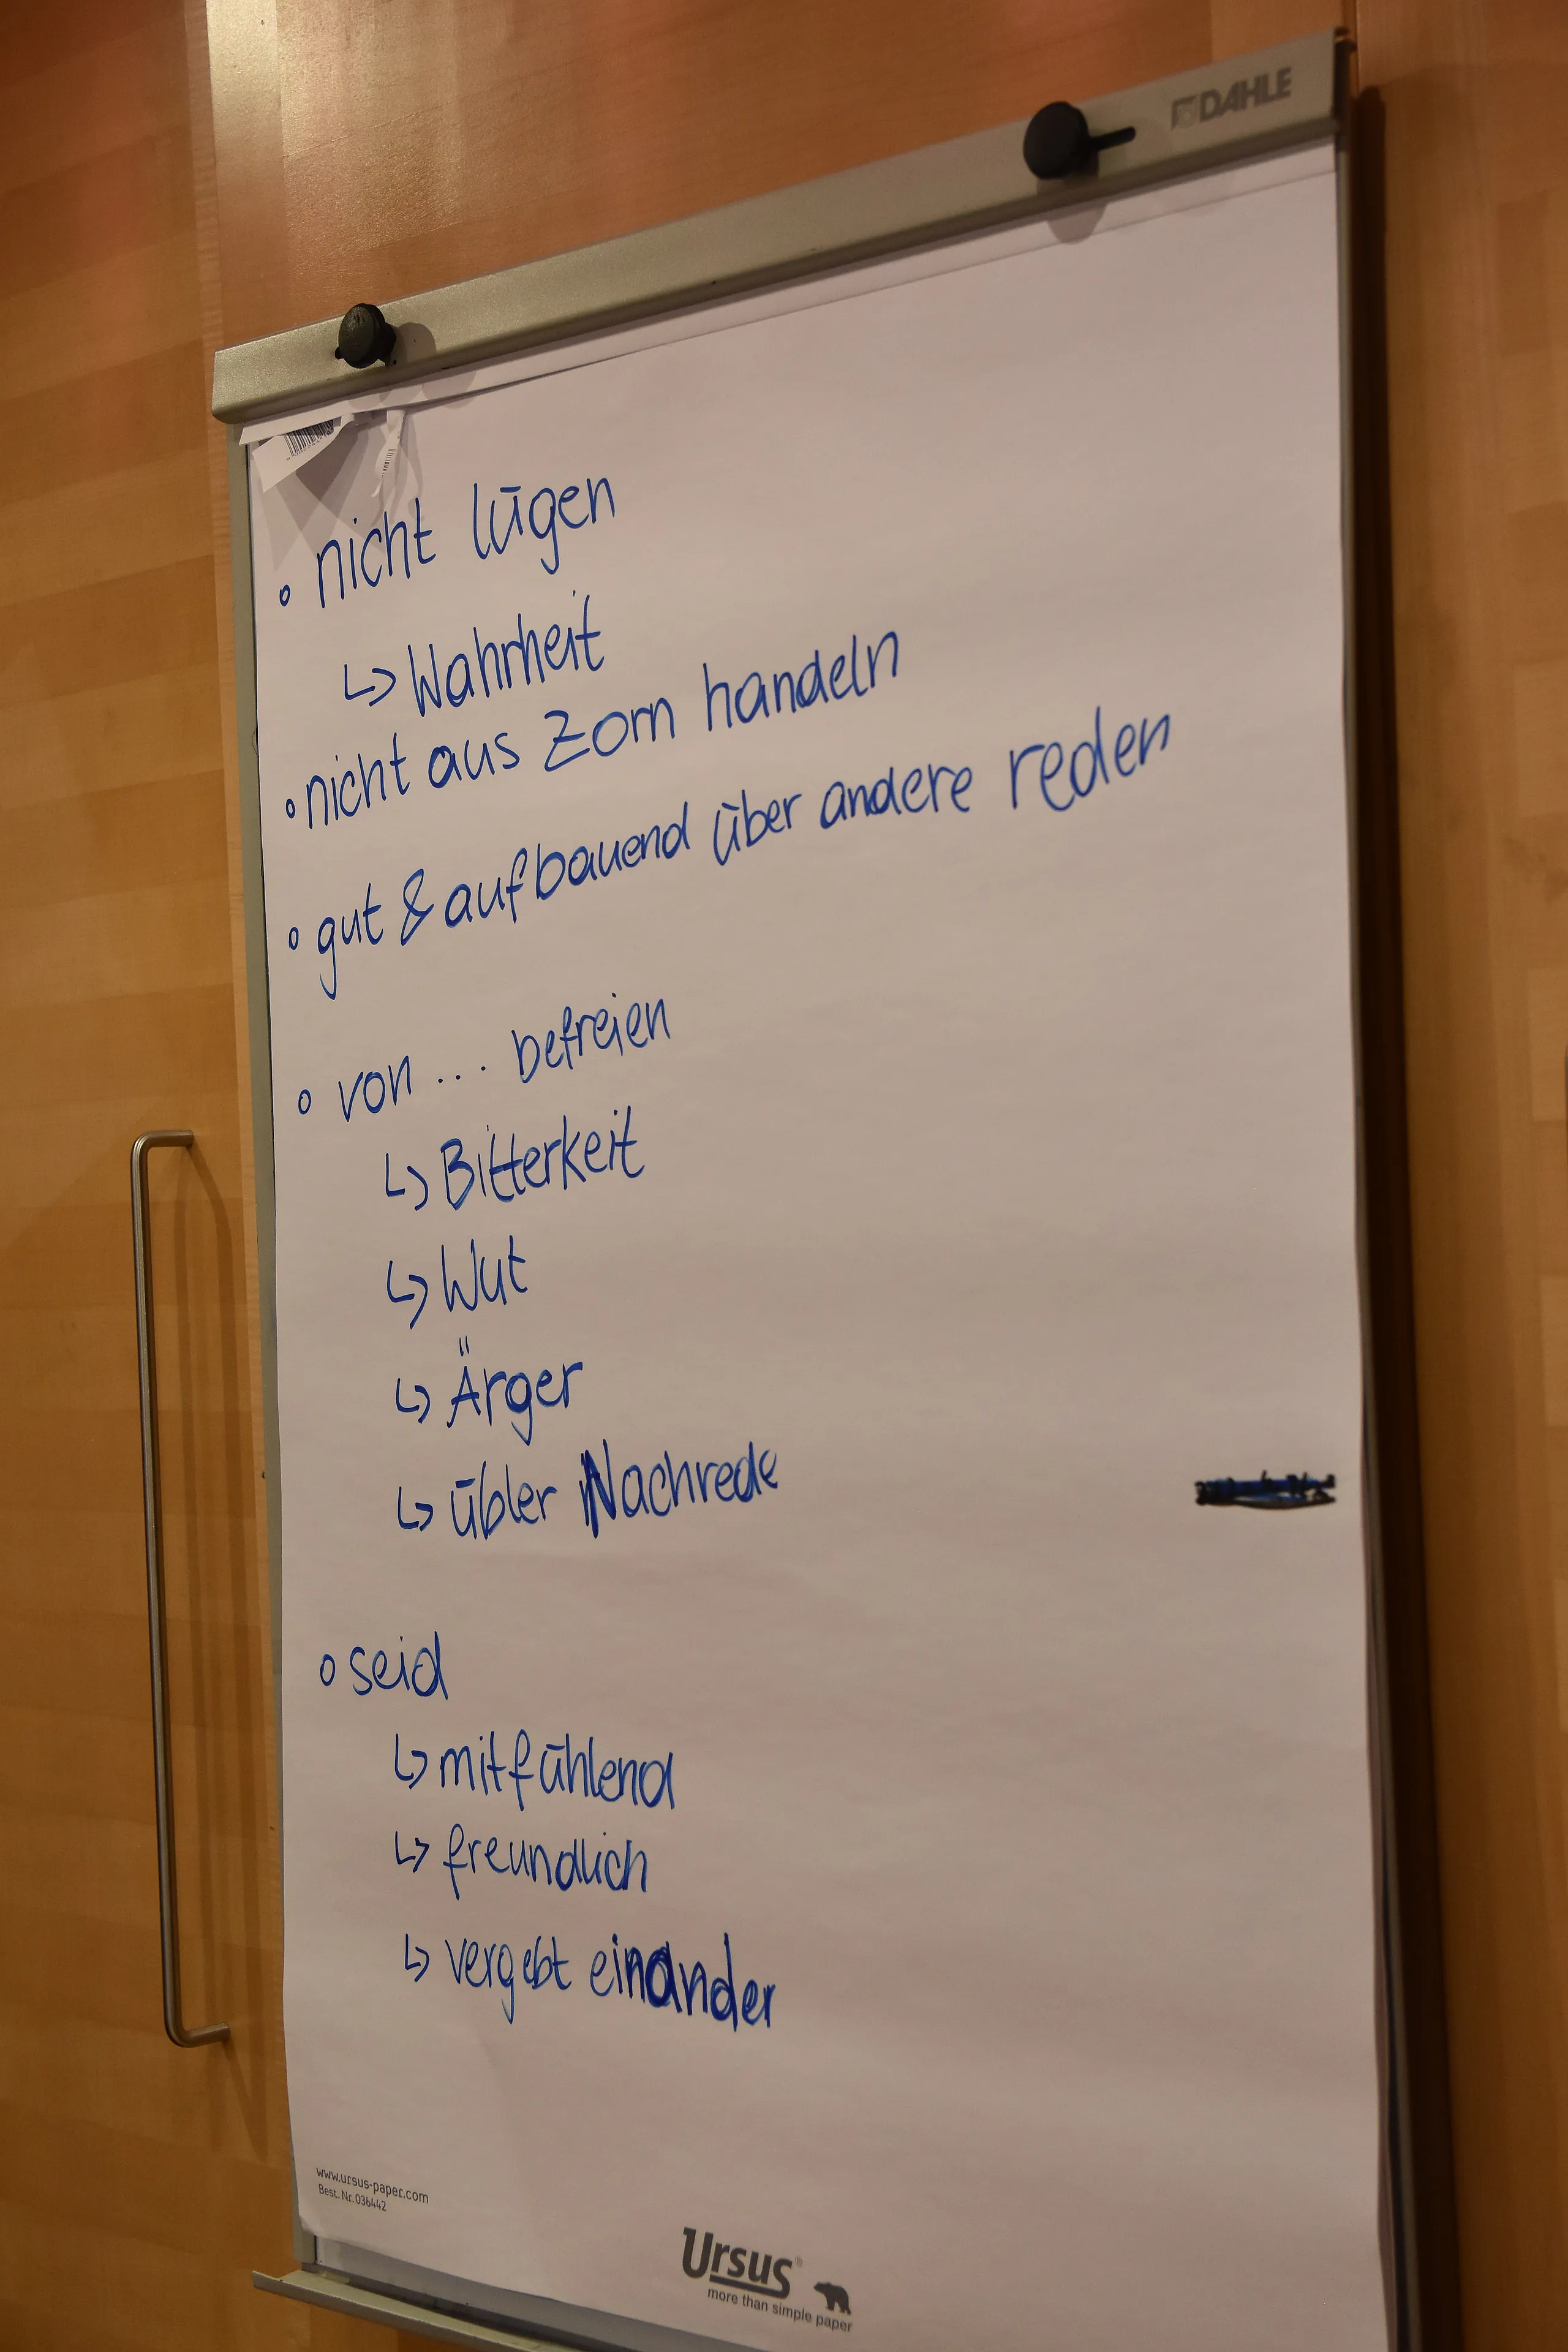 DAHLE
° nicht lügen
↳ Wahrheit
° nicht aus Zorn handeln
° gut & aufbauend über andere reden
° von ... befreien
↳ Bitterkeit
↳ Wut
↳ Ärger
↳ übler Nachrede
° seid
↳ mitfühlend
↳ freundlich
↳ vergebt einander
www.ursus-paper.com
Best. Nr. 036442
Ursus®
more than simple paper